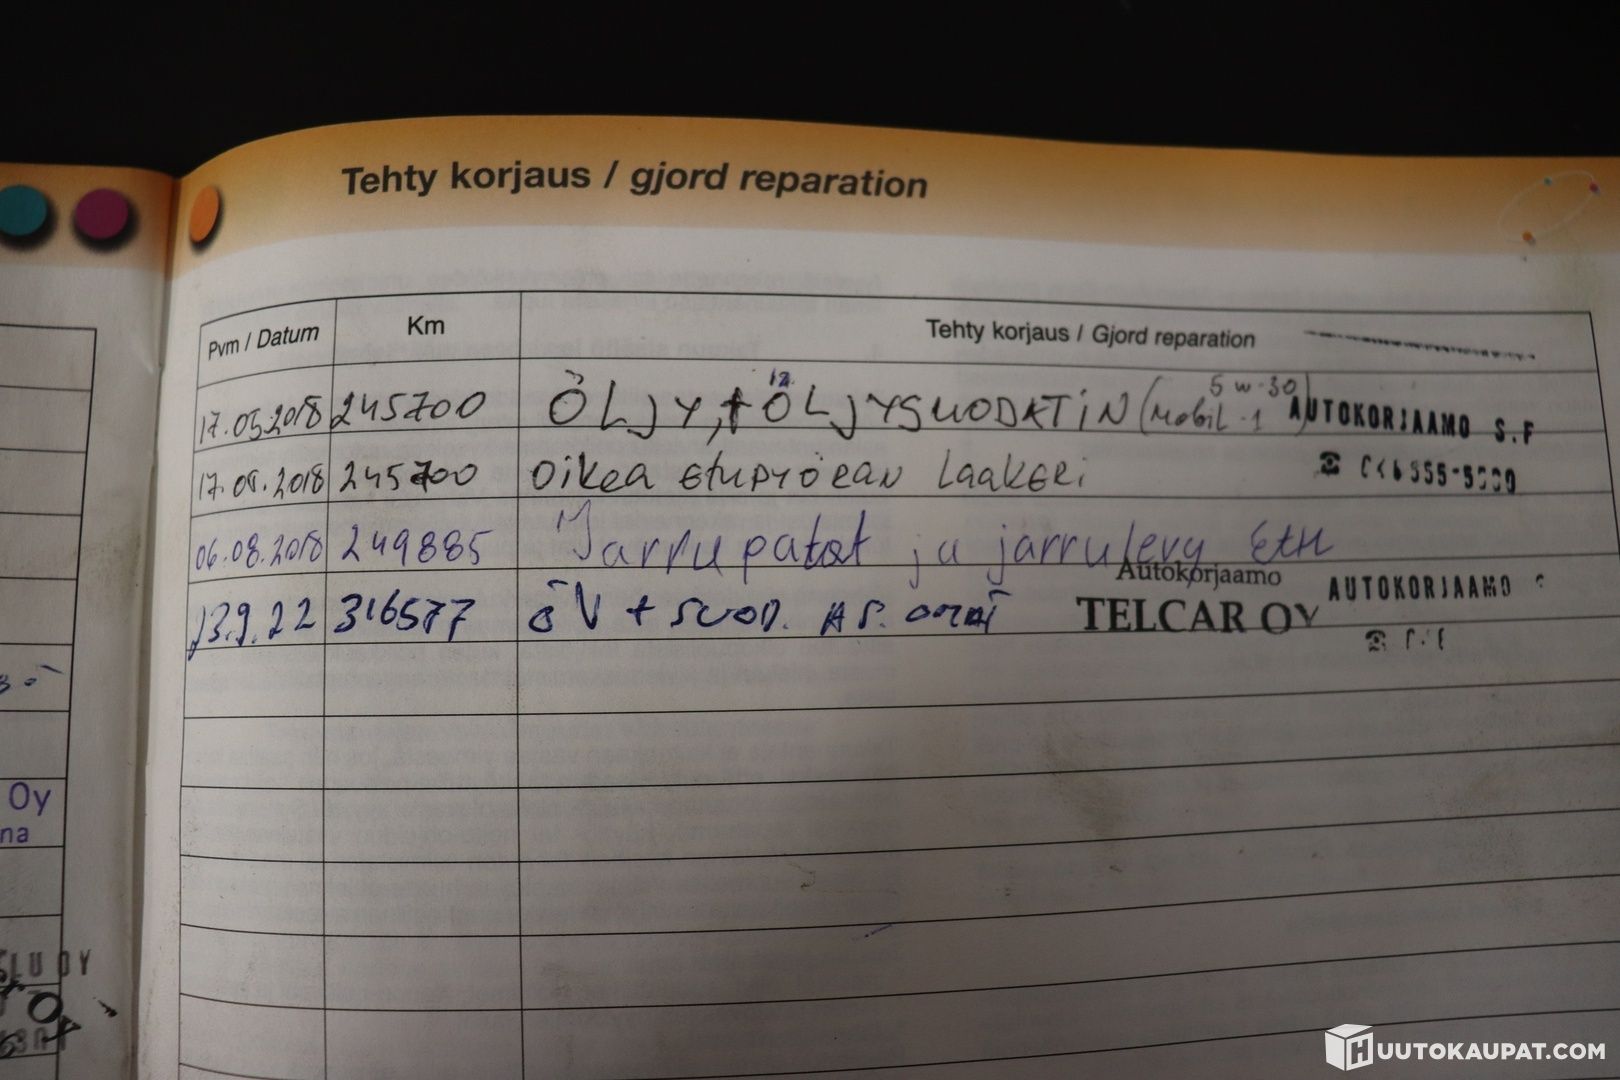 Tehty korjaus / gjord reparation
Pvm / Datum Km Tehty korjaus / Gjord reparation
17.05.2018 245700 ÖLJY, + ÖLJYSUODATIN (Mobil-1 5w-30) AUTOKORJAAMO S.F
17.05.2018 245700 Oikea etupyörän Laakeri
06.08.2018 249885 Jarrupalat ja jarrulevy Etu
Autokorjaamo AUTOKORJAAMO
13.9.22 316577 ÖV + SUOD. AS. OMAT TELCAR OY
Oy
na
OY
HUUTOKAUPAT.COM